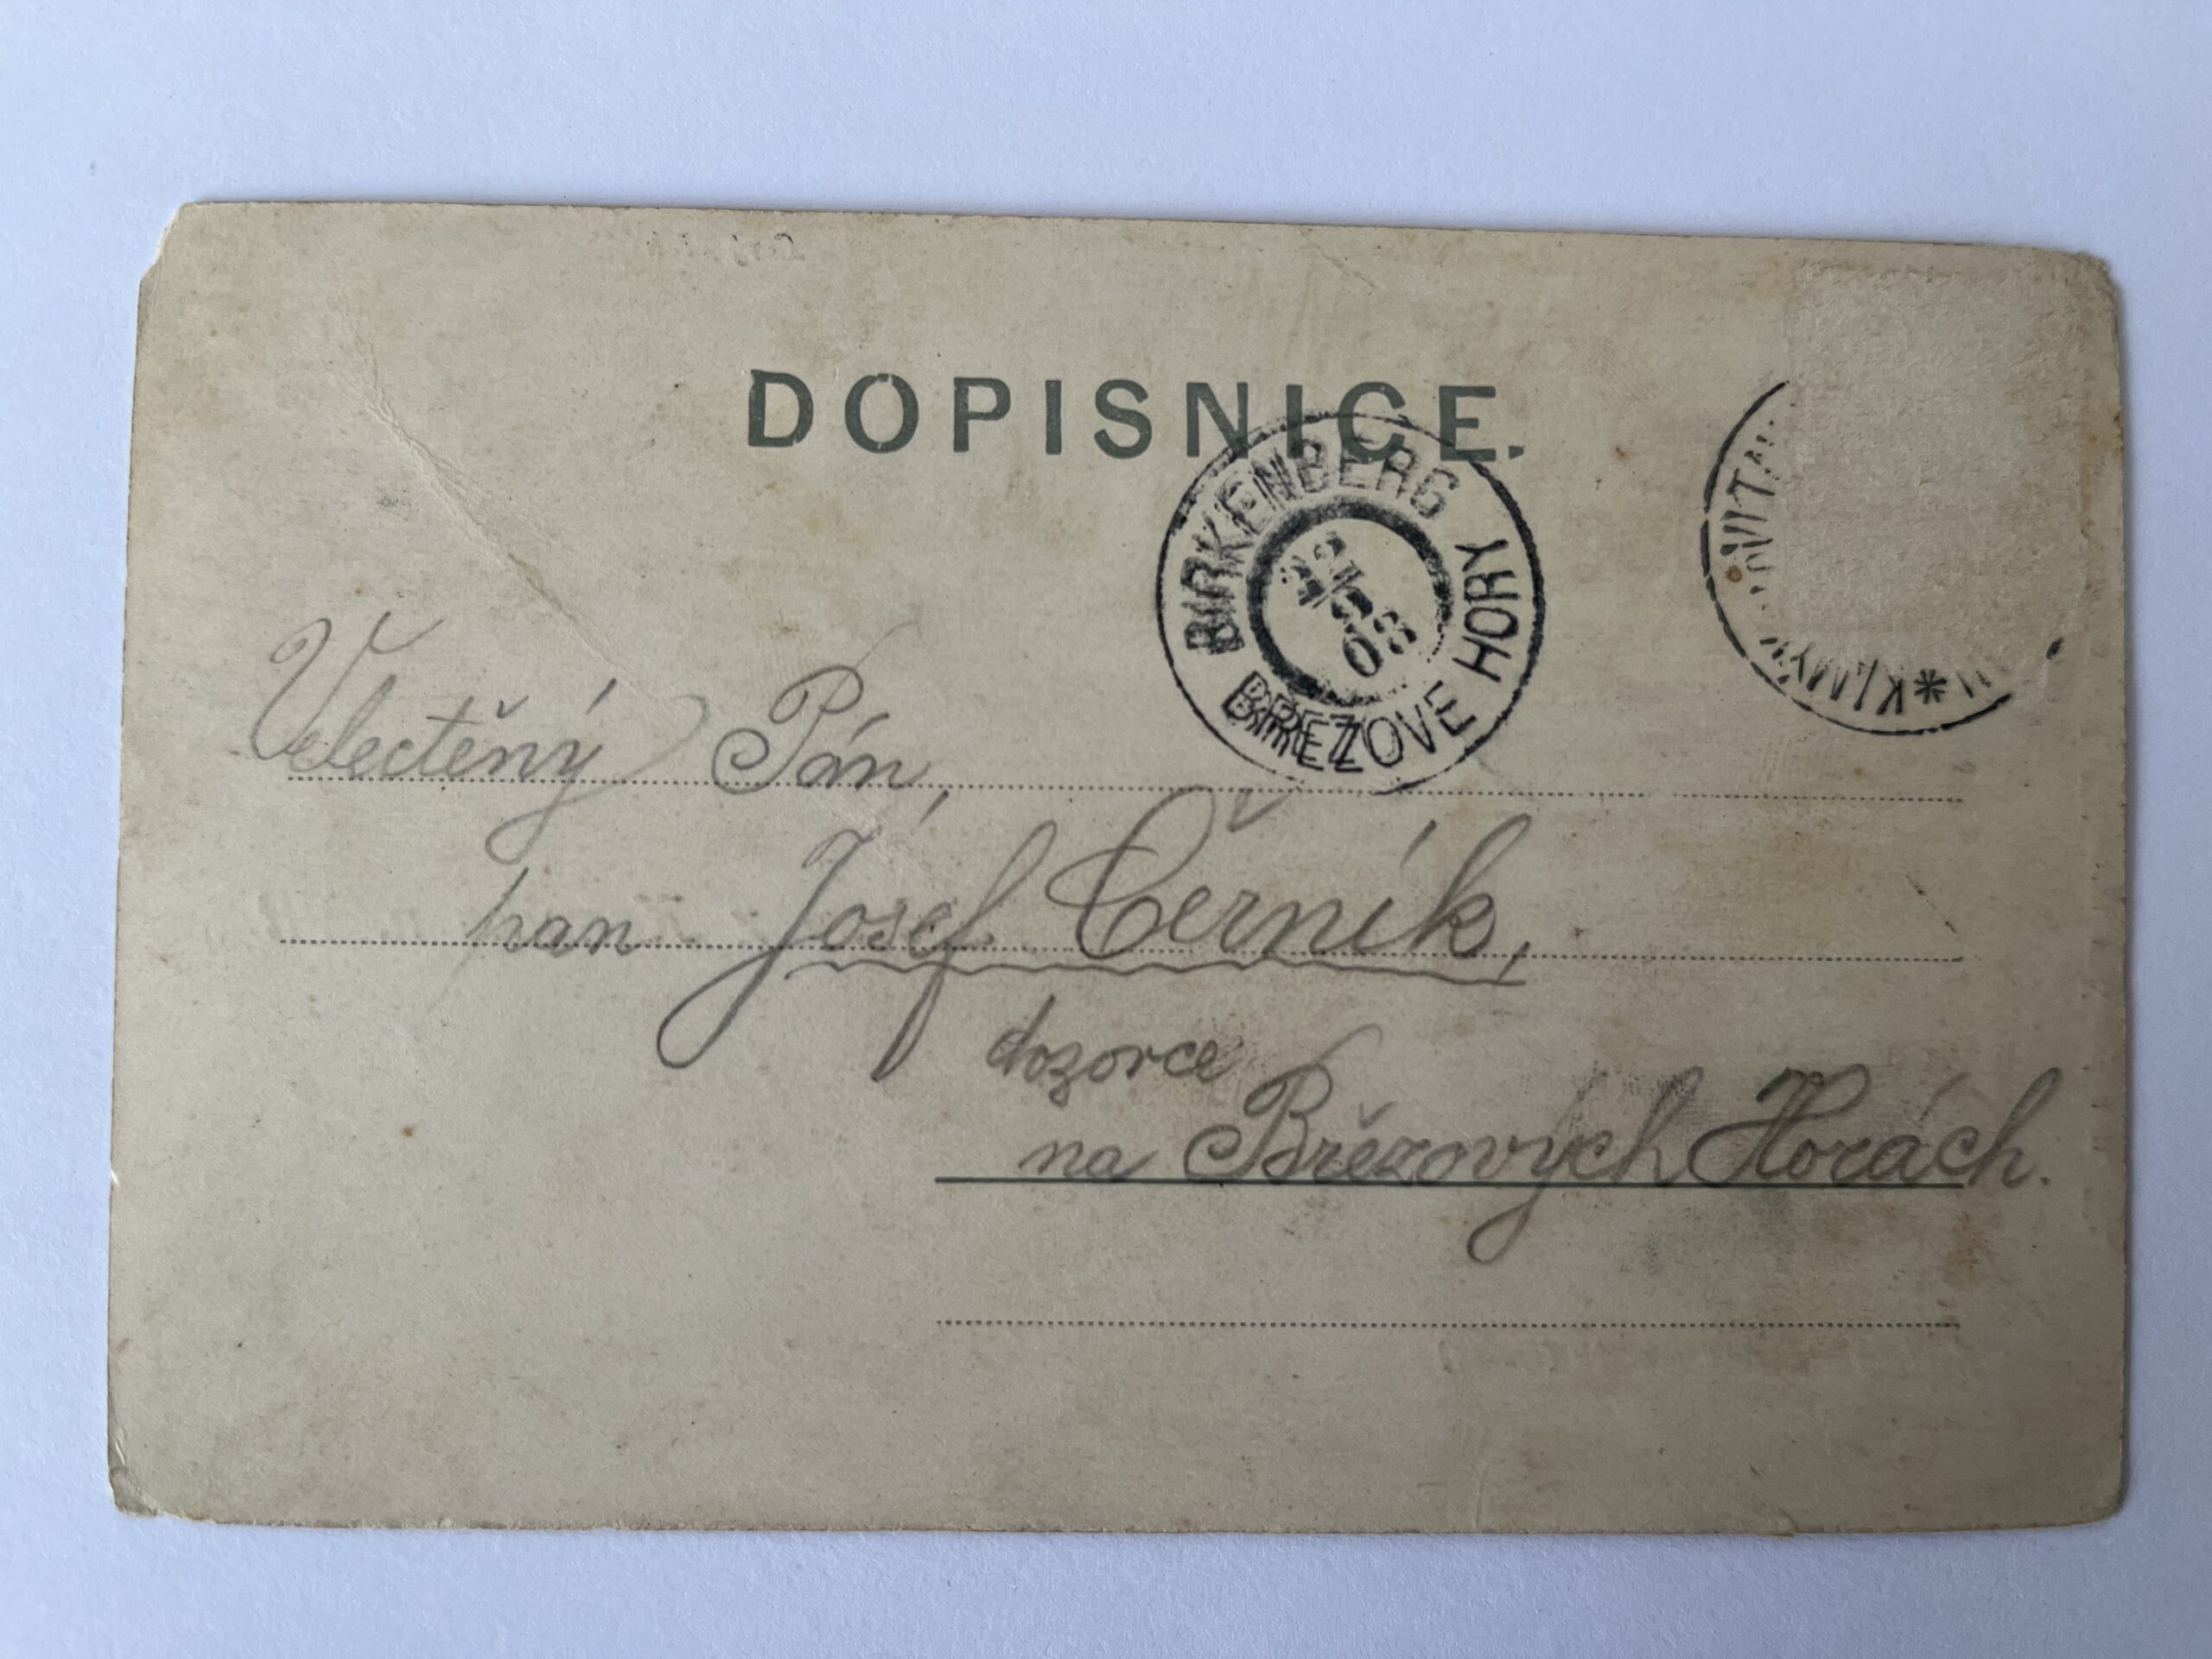 DOPISNICE.
BIRKENBERG
BŘEZOVE HORY
03
Velectěný Pán,
pan Josef Černík,
dozorce
na Březových Horách.